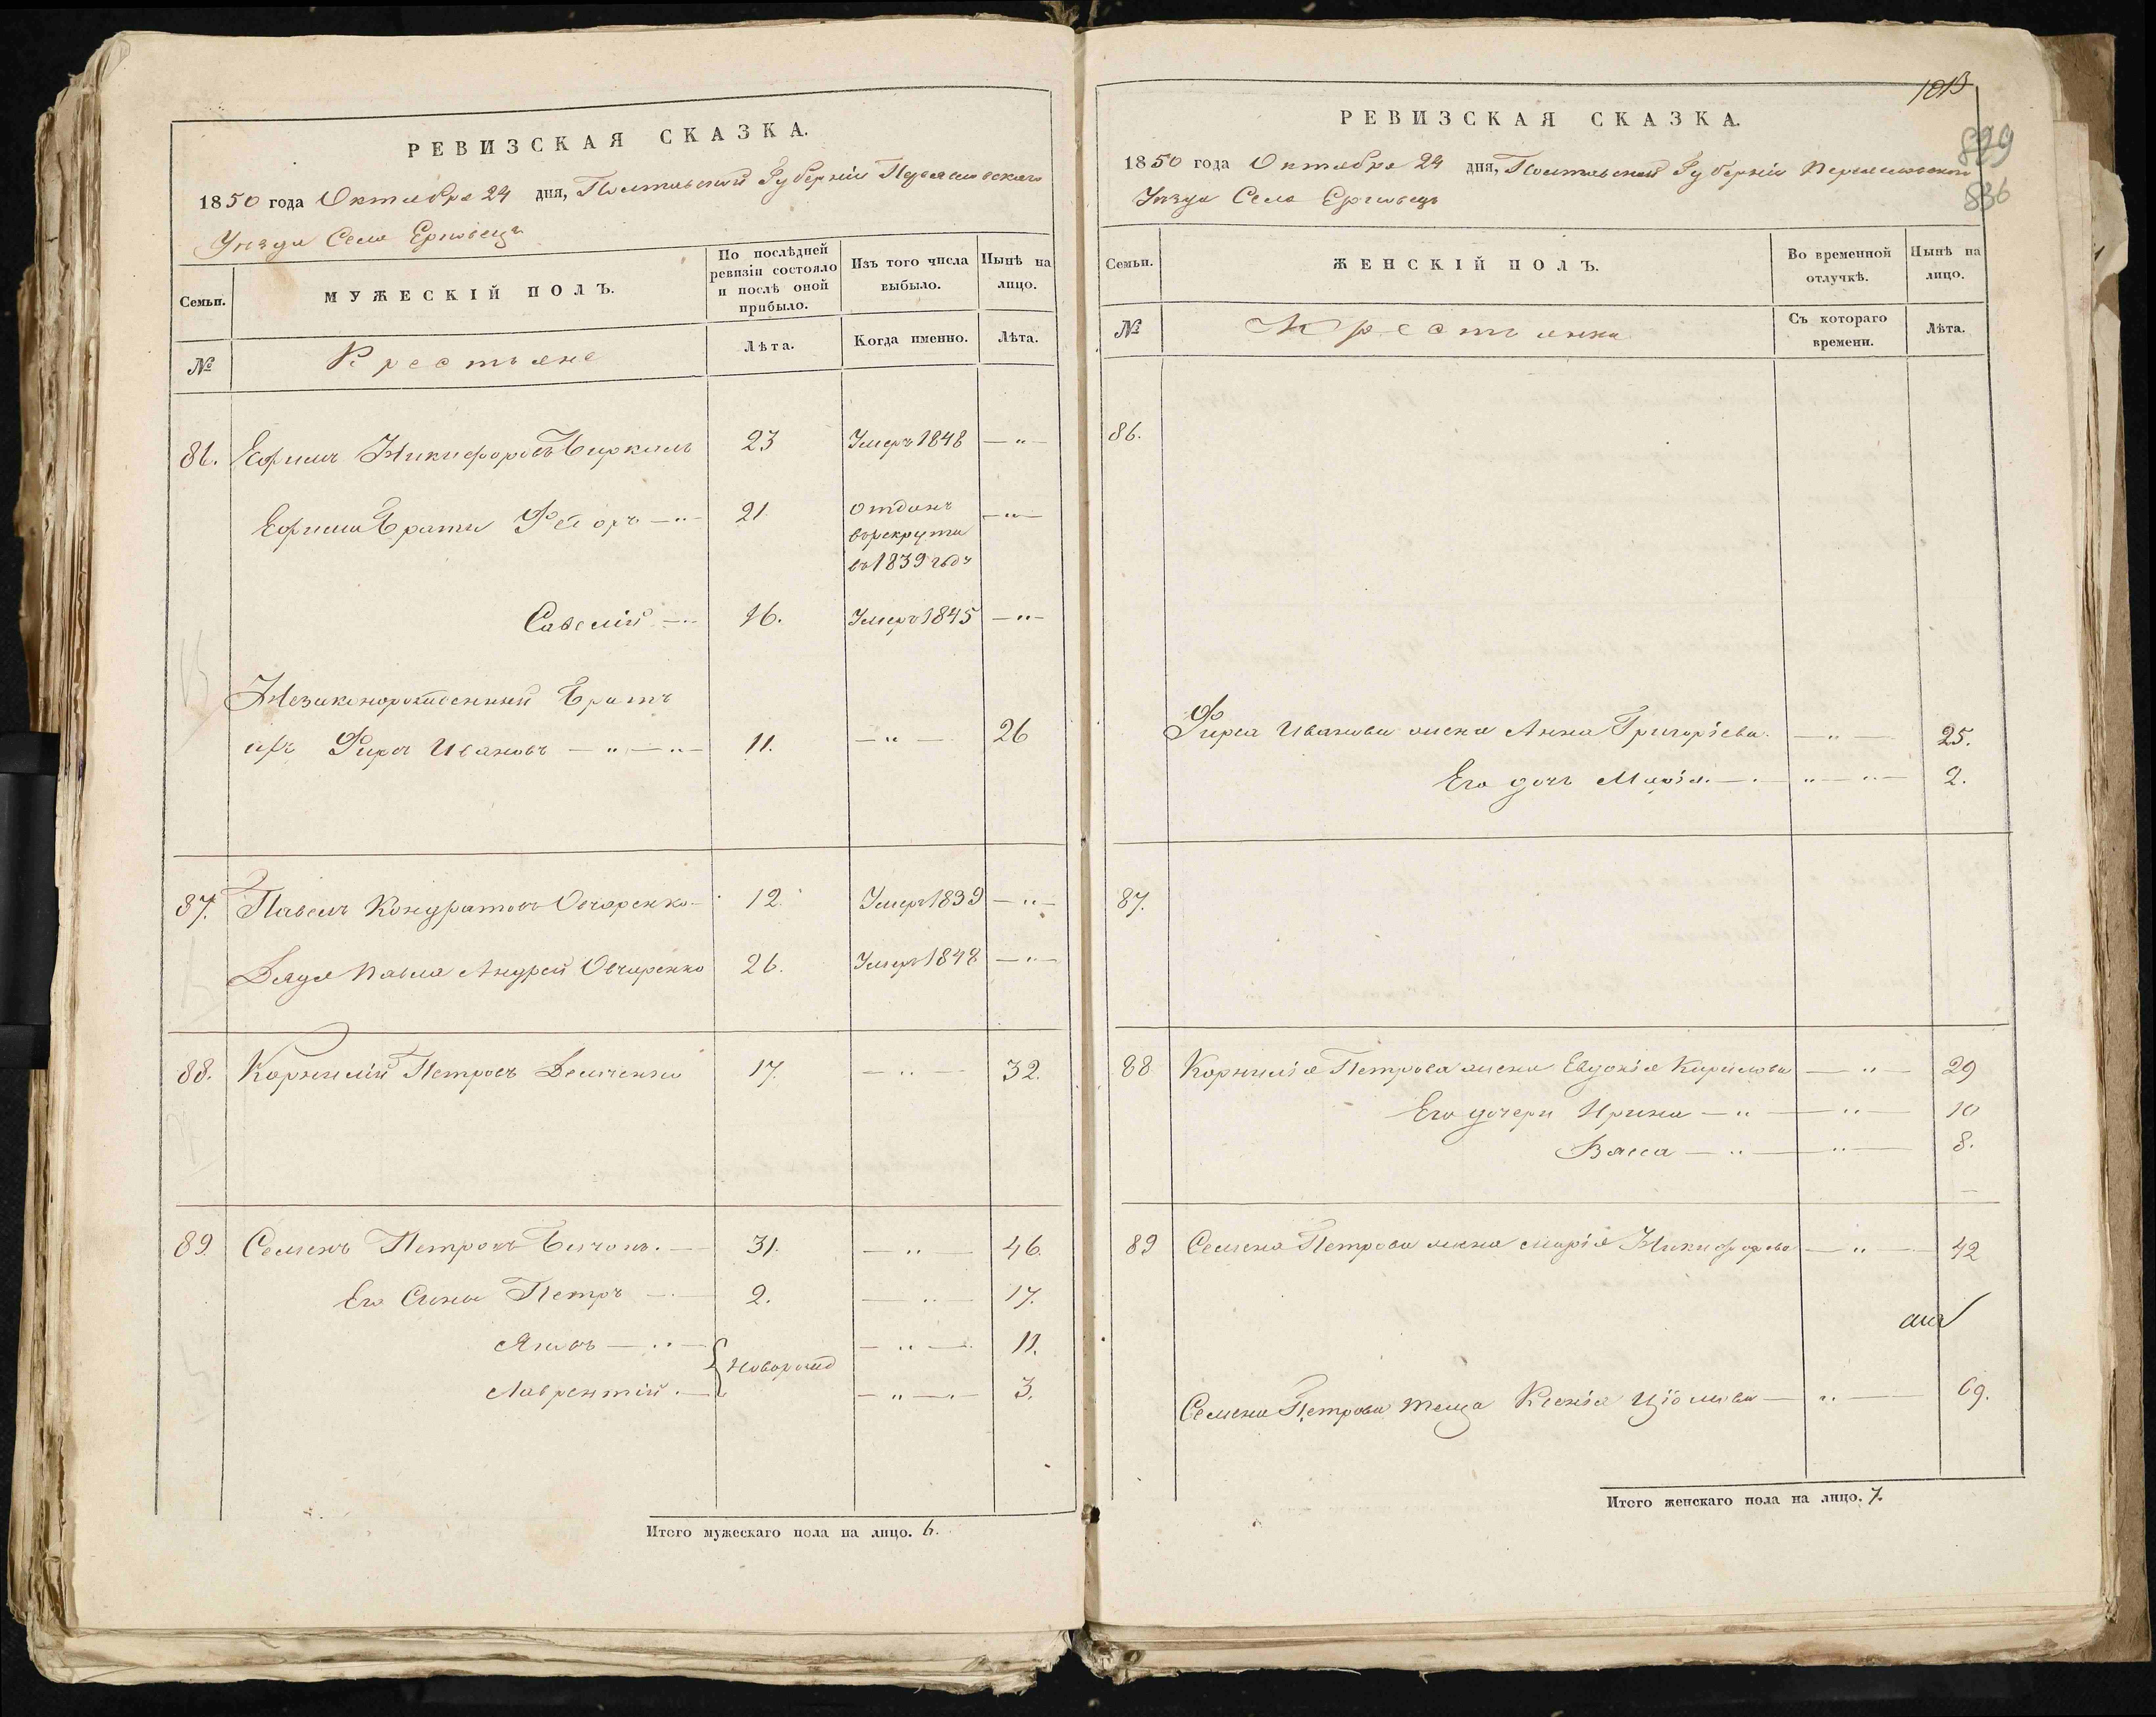 РЕВИЗСКАЯ СКАЗКА.
1850 года Октября 24 дня, Полтавской Губерніи Переяславскаго
Уезда Села Ерковецъ
Семьи.
МУЖЕСКІЙ ПОЛЪ.
По послѣдней ревизіи состояло и послѣ оной прибыло.
Изъ того числа выбыло.
Нынѣ на лицо.
№
Крестьяне
Лѣта.
Когда именно.
Лѣта.
86. Ефимъ Никифоровъ 23 Умеръ 1848 — " —
Ефима братья Федоръ — " — 21 отданъ — " —
въ рекруты
въ 1839 годъ
Савелій — 16. Умеръ 1845 — " —
Незаконорожденный братъ
Фирсъ Ивановъ — " — " — 11. — " — 26
87. Павелъ Кондратовъ Овчаренко — 12. Умеръ 1839 — " —
Дядя Павла Андрей Овчаренко 26. Умеръ 1848 — " —
88. Корнилій Петровъ Демченко 17. — " — 32.
89. Семенъ Петровъ — 31. — " — 46.
Его Сыны Петръ — 2. — " — 17.
Яковъ — " — — " — 11.
Новорожд
Лаврентій. — — " — " — 3.
Итого мужескаго пола на лицо. 6.
1013
829
836
РЕВИЗСКАЯ СКАЗКА.
1850 года Октября 24 дня, Полтавской Губерніи Переяславского
Уезда Села Ерковецъ
Семьи.
ЖЕНСКІЙ ПОЛЪ.
Во временной отлучкѣ.
Нынѣ на лицо.
№
Крестьянки
Съ котораго времени.
Лѣта.
86.
Фирса Иванова жена Анна Григоріева. — " — 25.
Его дочь Марія. — " — " — 2.
87.
88 Корнилія Петрова жена Евдокія Кирилова — " — 29
Его дочери Ирина — " — " — 10
Васса — " — " — 8.
89 Семена Петрова жена Марія Никифорова — " — 42
Семена Петрова теща Ксенія — " — 69.
Итого женскаго пола на лицо. 7.